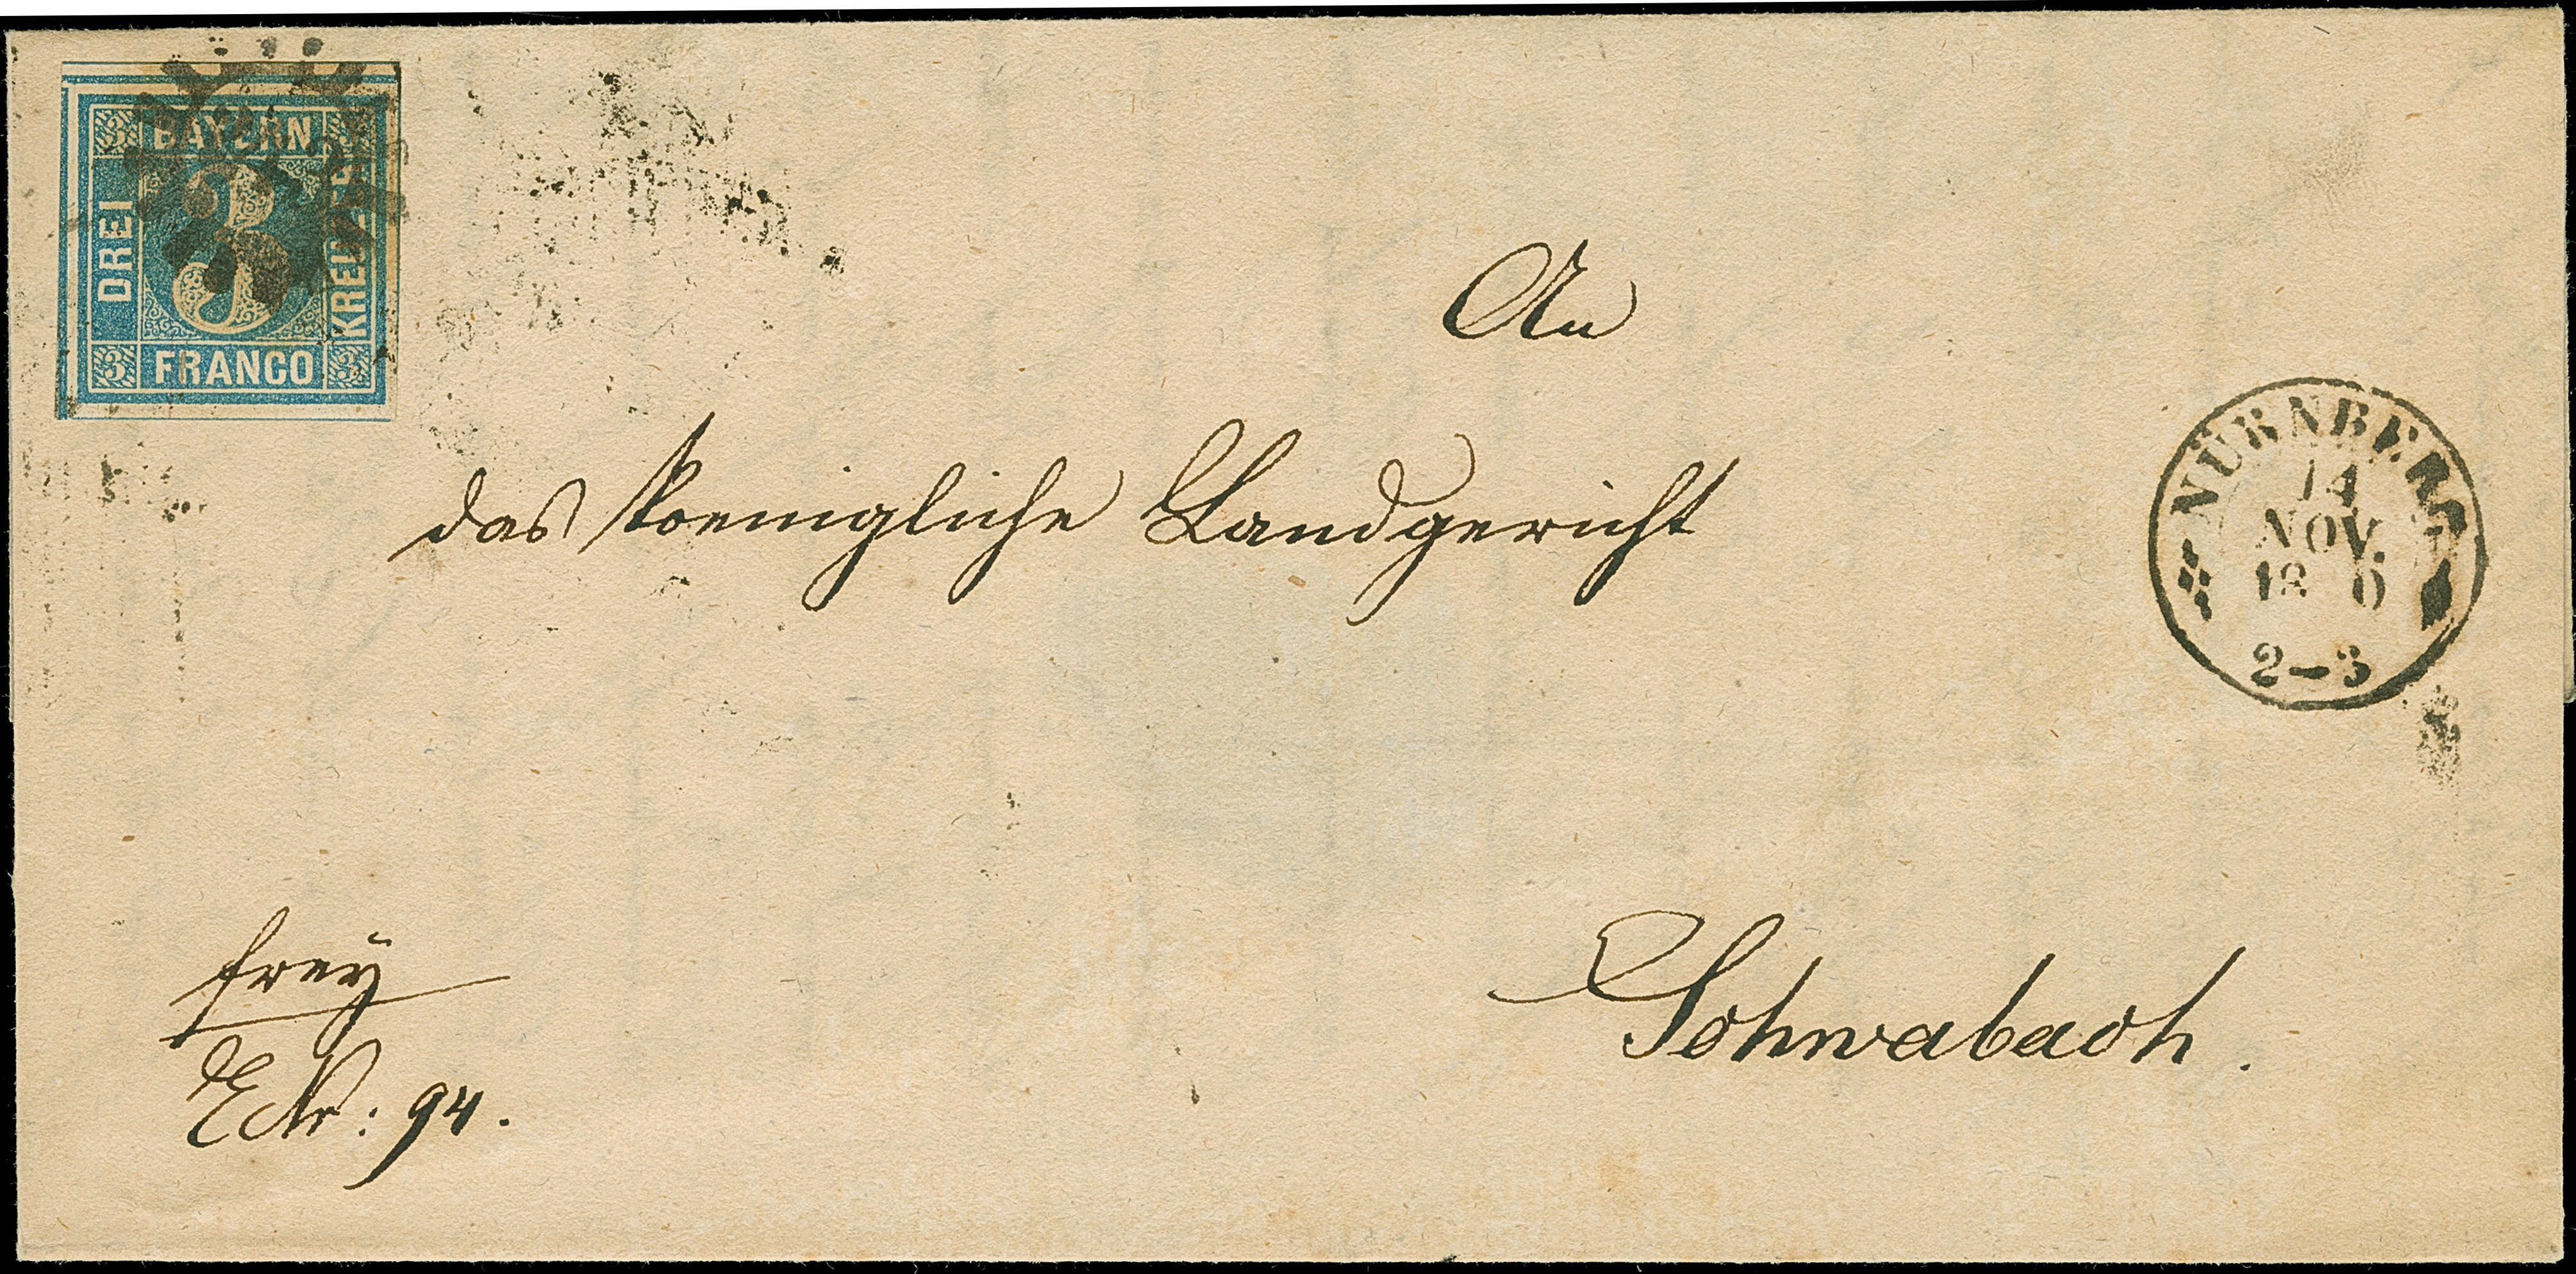 3 BAYERN 3
DREI
3
KREUZER
3 FRANCO 3
An
das koenigliche Landgericht
NÜRNBERG
14
NOV.
2-3
frey
Schwabach.
E Nr: 94.